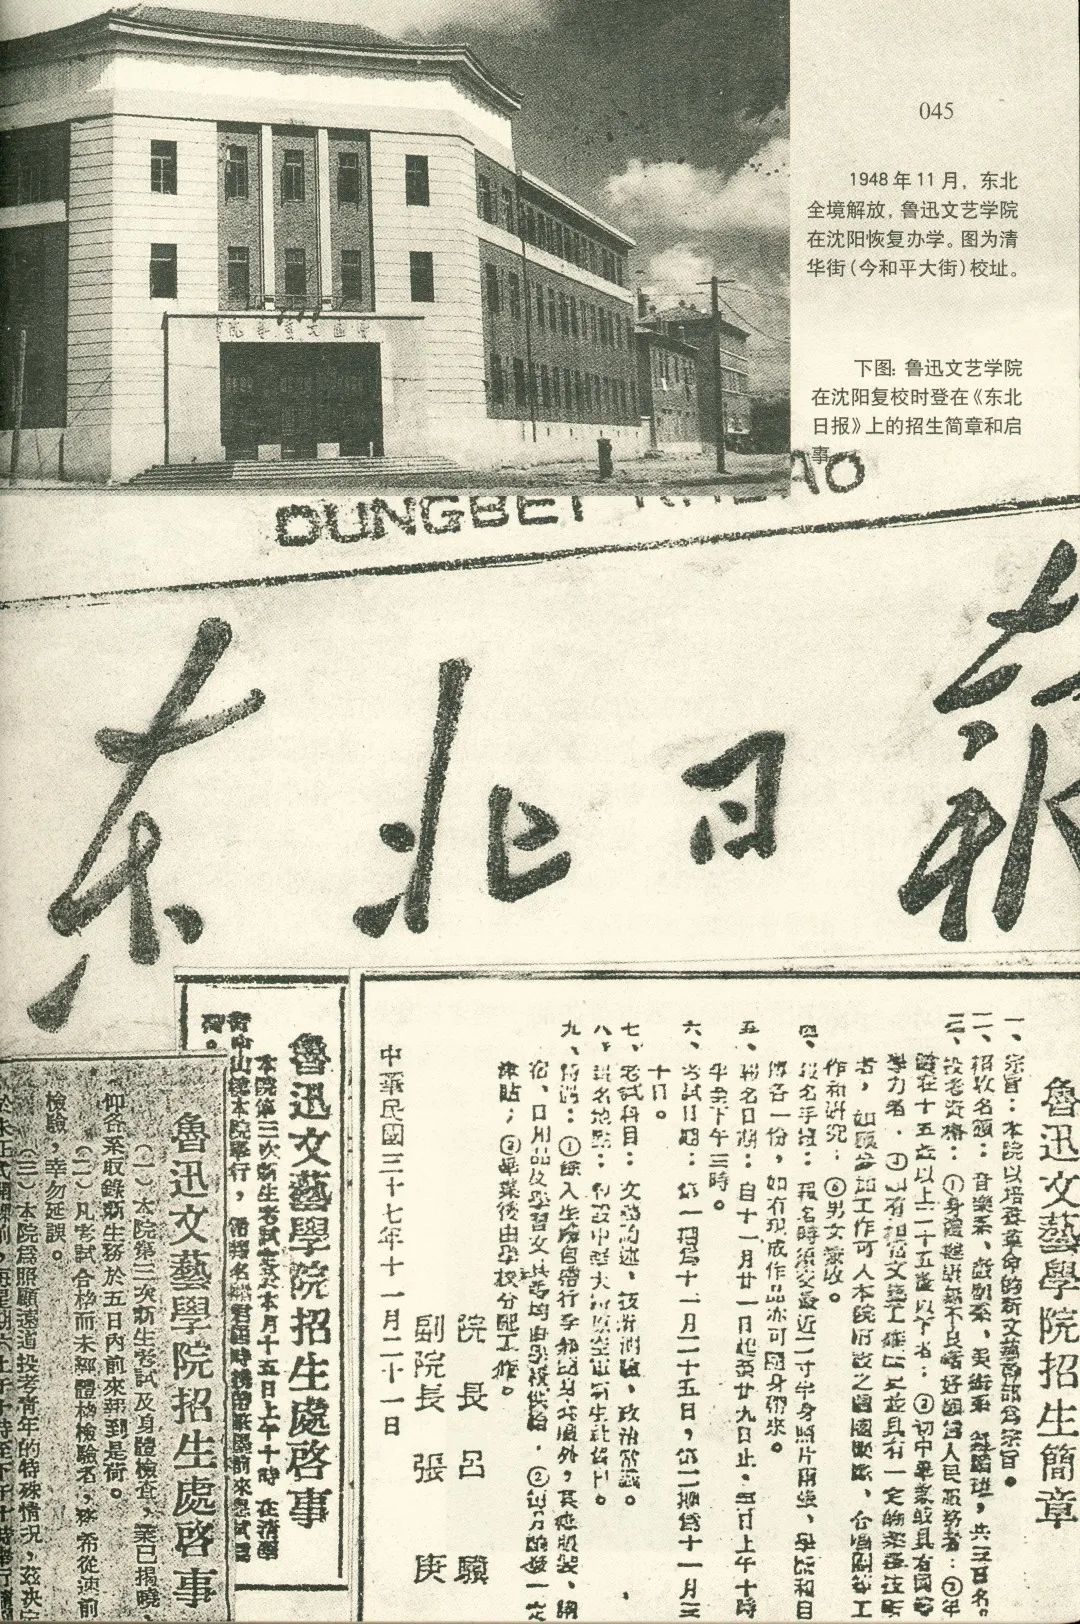 045
1948年11月，东北
全境解放，鲁迅文艺学院
在沈阳恢复办学。图为清
华街（今和平大街）校址。
下图：鲁迅文艺学院
在沈阳复校时登在《东北
日报》上的招生简章和启
事。
DUNGBEI
东北日報
魯迅文藝學院招生簡章
一、宗旨：本院以培養革命的新文藝幹部為宗旨。
二、招收名額：音樂系、戲劇系、美術系、舞蹈班，共三百名。
三、投考資格：①身體健康無不良嗜好願為人民服務者；②年
齡在十五歲以上二十五歲以下者；③初中畢業或具有同等
學力者，
作和研究；⑥男女兼收。
四、報名手續：報名時須交最近二寸半身照片兩張，學歷和自
傳各一份，如有現成作品亦可隨身帶來。
五、報名日期：自十一月廿一日起至廿九日止，每日上午十時
半至下午三時。
六、考試日期：第一期為十一月二十五日，第二期為十一月三
十日。
七、考試科目：文藝測驗，政治常識。
八、報名地點：
九、待遇：①
宿、日用品及學習文具等均由學校供給，②
津貼；③畢業後由學校分配工作。
中華民國三十七年十一月二十一日
院長 呂驥
副院長 張庚
魯迅文藝學院招生處啓事
本院第三次新生考試定於本月十五日上午十時 在清華
街中山堂本院舉行，
魯迅文藝學院招生處啓事
（一）本院第三次新生考試及身體檢查，業已揭曉，
仰各系收錄新生務於五日內前來報到是荷。
（二）凡考試合格而未經體格檢驗者，務希從速前
檢驗，幸勿延誤。
（三）本院爲照顧遠道投考青年的特殊情況，茲決定